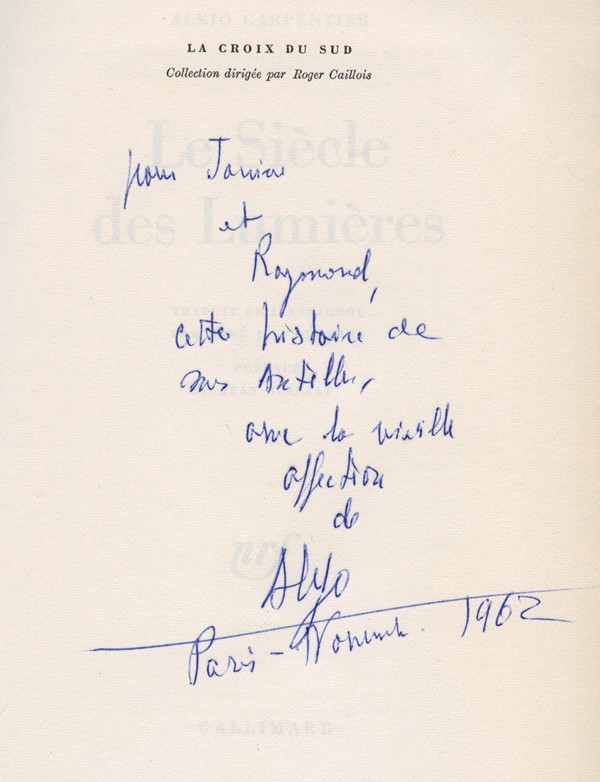 ALEJO CARPENTIER
LA CROIX DU SUD
Collection dirigée par Roger Caillois
Le Siècle
des Lumières
pour
et
Raymond,
TRADUIT DE L'ESPAGNOL
cette histoire de
PRÉFACE
Antilles,
avec la vieille
affection
de
nrf
Alejo
Paris - 1962
GALLIMARD